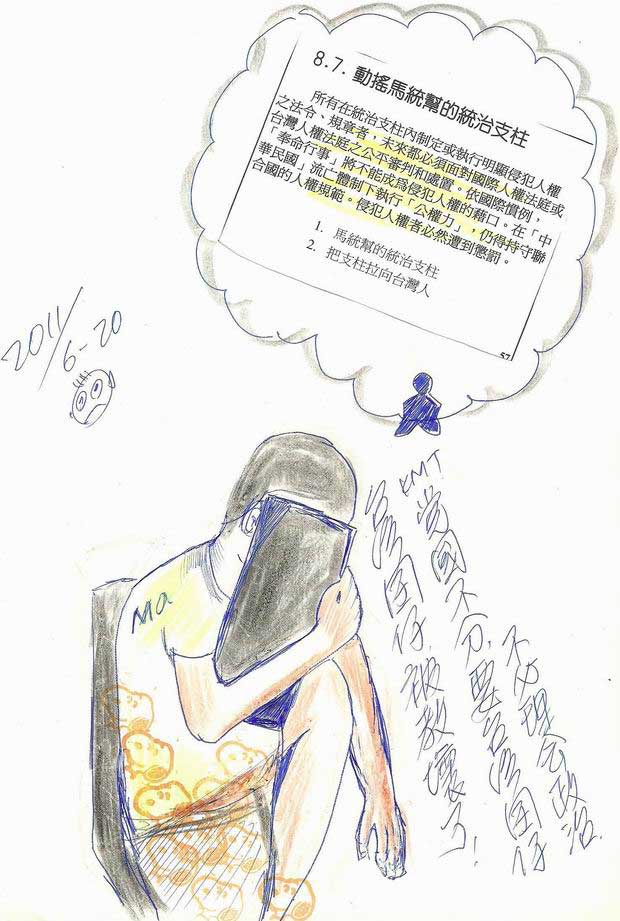 8.7. 動搖馬統幫的統治支柱
所有在統治支柱內制定或執行明顯侵犯人權
之法令、規章者，未來都必須面對國際人權法庭或
台灣人權法庭之公平審判和處置。依國際慣例，
「奉命行事」將不能成為侵犯人權的藉口。在「中
華民國」流亡體制下執行「公權力」，仍得持守聯
合國的人權規範。侵犯人權者必然遭到懲罰。
1. 馬統幫的統治支柱
2. 把支柱拉向台灣人
57
2011/6-20
Ma
不必理会政治.
KMT 党國不分, 要台湾囝仔
台湾囝仔, 被教壞了!